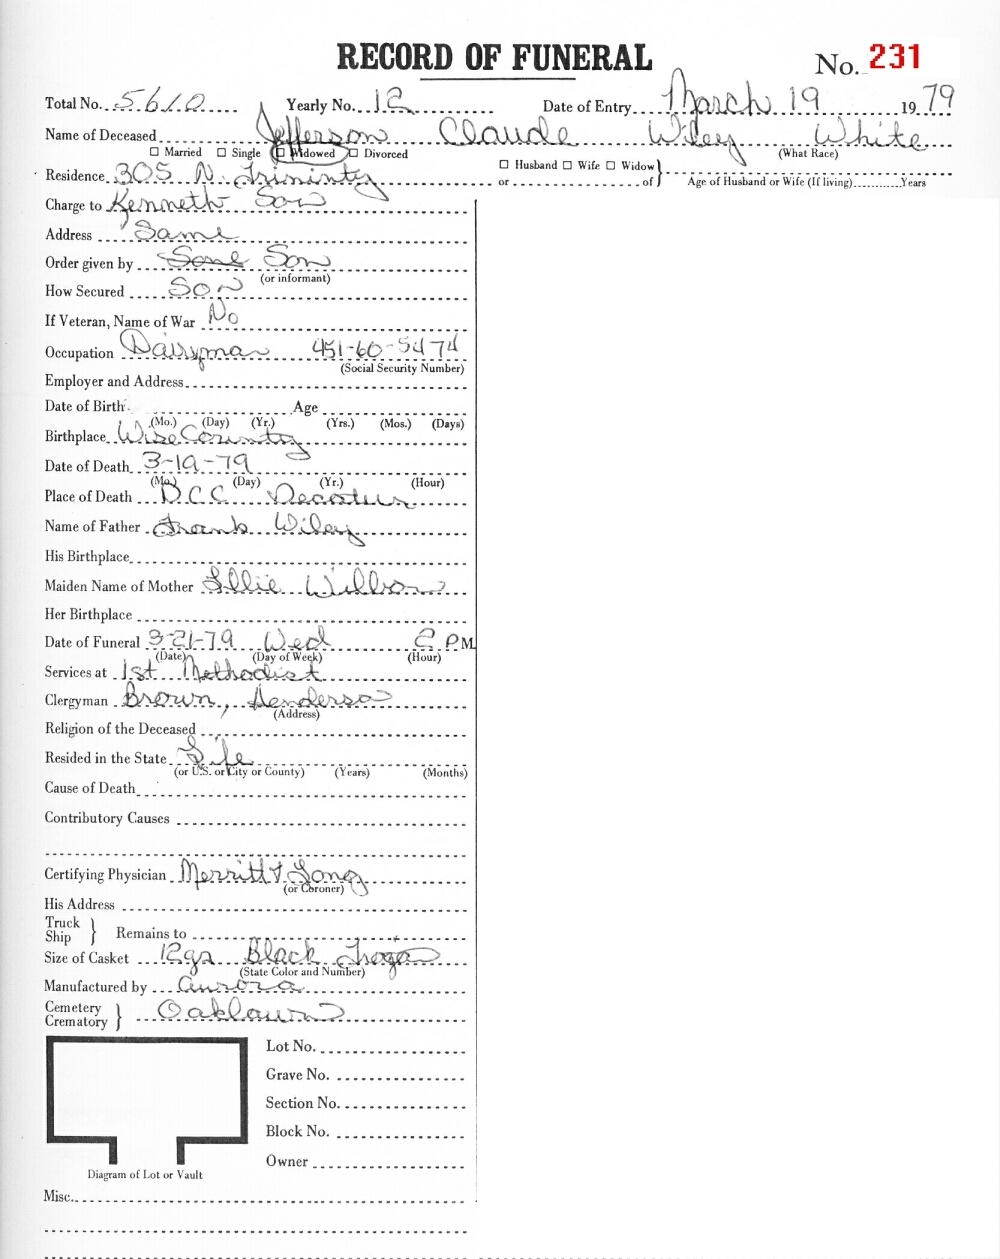 RECORD OF FUNERAL
No. 231
Total No. 5610 Yearly No. 12 Date of Entry March 19 1979
Name of Deceased Jefferson Claude Wiley White
☐ Married ☐ Single ☐ Widowed ☐ Divorced (What Race)
☐ Husband ☐ Wife ☐ Widow
Residence 305 N. Trininty or of Age of Husband or Wife (If living) Years
Charge to Kenneth Son
Address Same
Order given by Son
(or informant)
How Secured Son
If Veteran, Name of War No
Occupation Dairyman 451-60-5474
(Social Security Number)
Employer and Address
Date of Birth Age
(Mo.) (Day) (Yr.) (Yrs.) (Mos.) (Days)
Birthplace Wise County
Date of Death 3-19-79
(Mo.) (Day) (Yr.) (Hour)
Place of Death D.C.C. Decatur
Name of Father Frank Wiley
His Birthplace
Maiden Name of Mother Lillie
Her Birthplace
Date of Funeral 3-21-79 Wed 2 PM
(Date) (Day of Week) (Hour)
Services at 1st Methodist
Clergyman Brown, Henderson
(Address)
Religion of the Deceased
Resided in the State Life
(or U.S. or City or County) (Years) (Months)
Cause of Death
Contributory Causes
Certifying Physician Merritt & Long
(or Coroner)
His Address
Truck
Ship } Remains to
Size of Casket 12ga Black
(State Color and Number)
Manufactured by Aurora
Cemetery
Crematory } Oaklawn
Lot No.
Grave No.
Section No.
Block No.
Owner
Diagram of Lot or Vault
Misc.